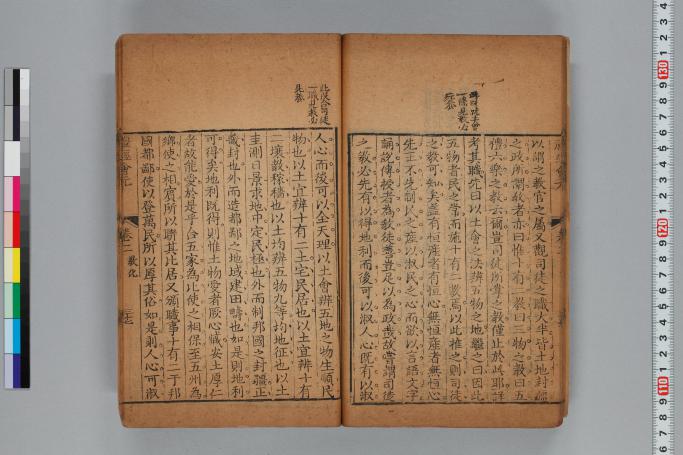 以謂之教官之屬又觀司徒之職大半皆土地封疆
之政所謂教者亦曰惟十有二教曰三物之教曰五
禮六樂之教云爾豈司徒所尊之教僅止於此耶詳
考其職先曰以土會之法辨五物之地繼之曰因此
五物者民之常而施十有二教焉以此推之則司徒
之教可知矣蓋有恒產者有恒心無恒產者無恒心
先王不先制民之產以淑民之心而欲以言語文字
訓說傳授者為教徒善豈足以為政哉故嘗謂司徒
之教必先有以得地利而後可以淑人心既有以淑
人心而後可以全天理以土會辨五地之物生順民
物也以土宜辨十有二土宅民居也以土宜辨十有
二壤教稼穡也以土均辨五物九等均地征也以土
圭測日景求地中定民極也外而制邦國之封疆正
畿封也外而造都鄙之地域建田疇也如是則地利
可得矣地利既得則惟土物愛者厥心臧安土厚仁
者故能愛於是乎合五家為比使之相保至五州為
鄉使之相賓所以聯其比居又頒職事十有二于邦
國都鄙使以登萬民所以厚其俗如是則人心可淑
禮經會元
卷二
教化